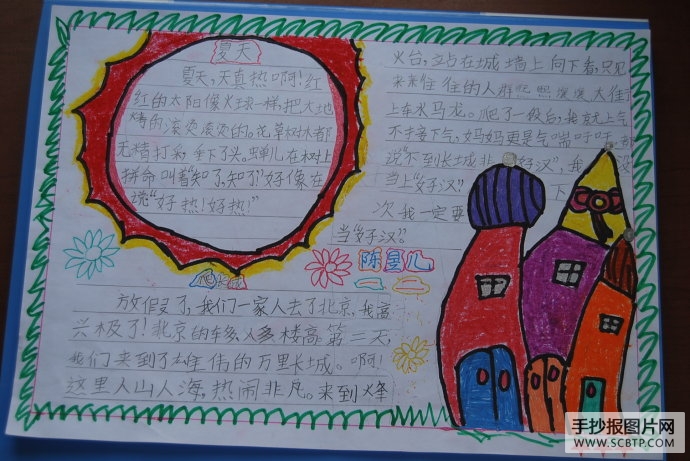 夏天
夏天，天真热啊！红
红的太阳像火球一样，把大地
烤的滚烫滚烫的。花草树木都
无精打彩，垂下了头。蝉儿在树上
拼命叫着“知了，知了”好像在
说“好热！好热！”
长城
放假了，我们一家人去了北京，我高
兴极了！北京的车多人多楼高第三天，
我们来到了雄伟的万里长城。啊！
这里人山人海，热闹非凡。来到烽
火台，立占在城墙上向下看，只见
来来住住的人群
上车水马龙。爬了一段后，我就上气
不接下气，妈妈更是气喘吁吁，都
说“不到长城非好汉”，我没
当上“好汉”下
次我一定要
当“好汉”。
陈曼儿
手抄报图片网
WWW.SCBTP.COM